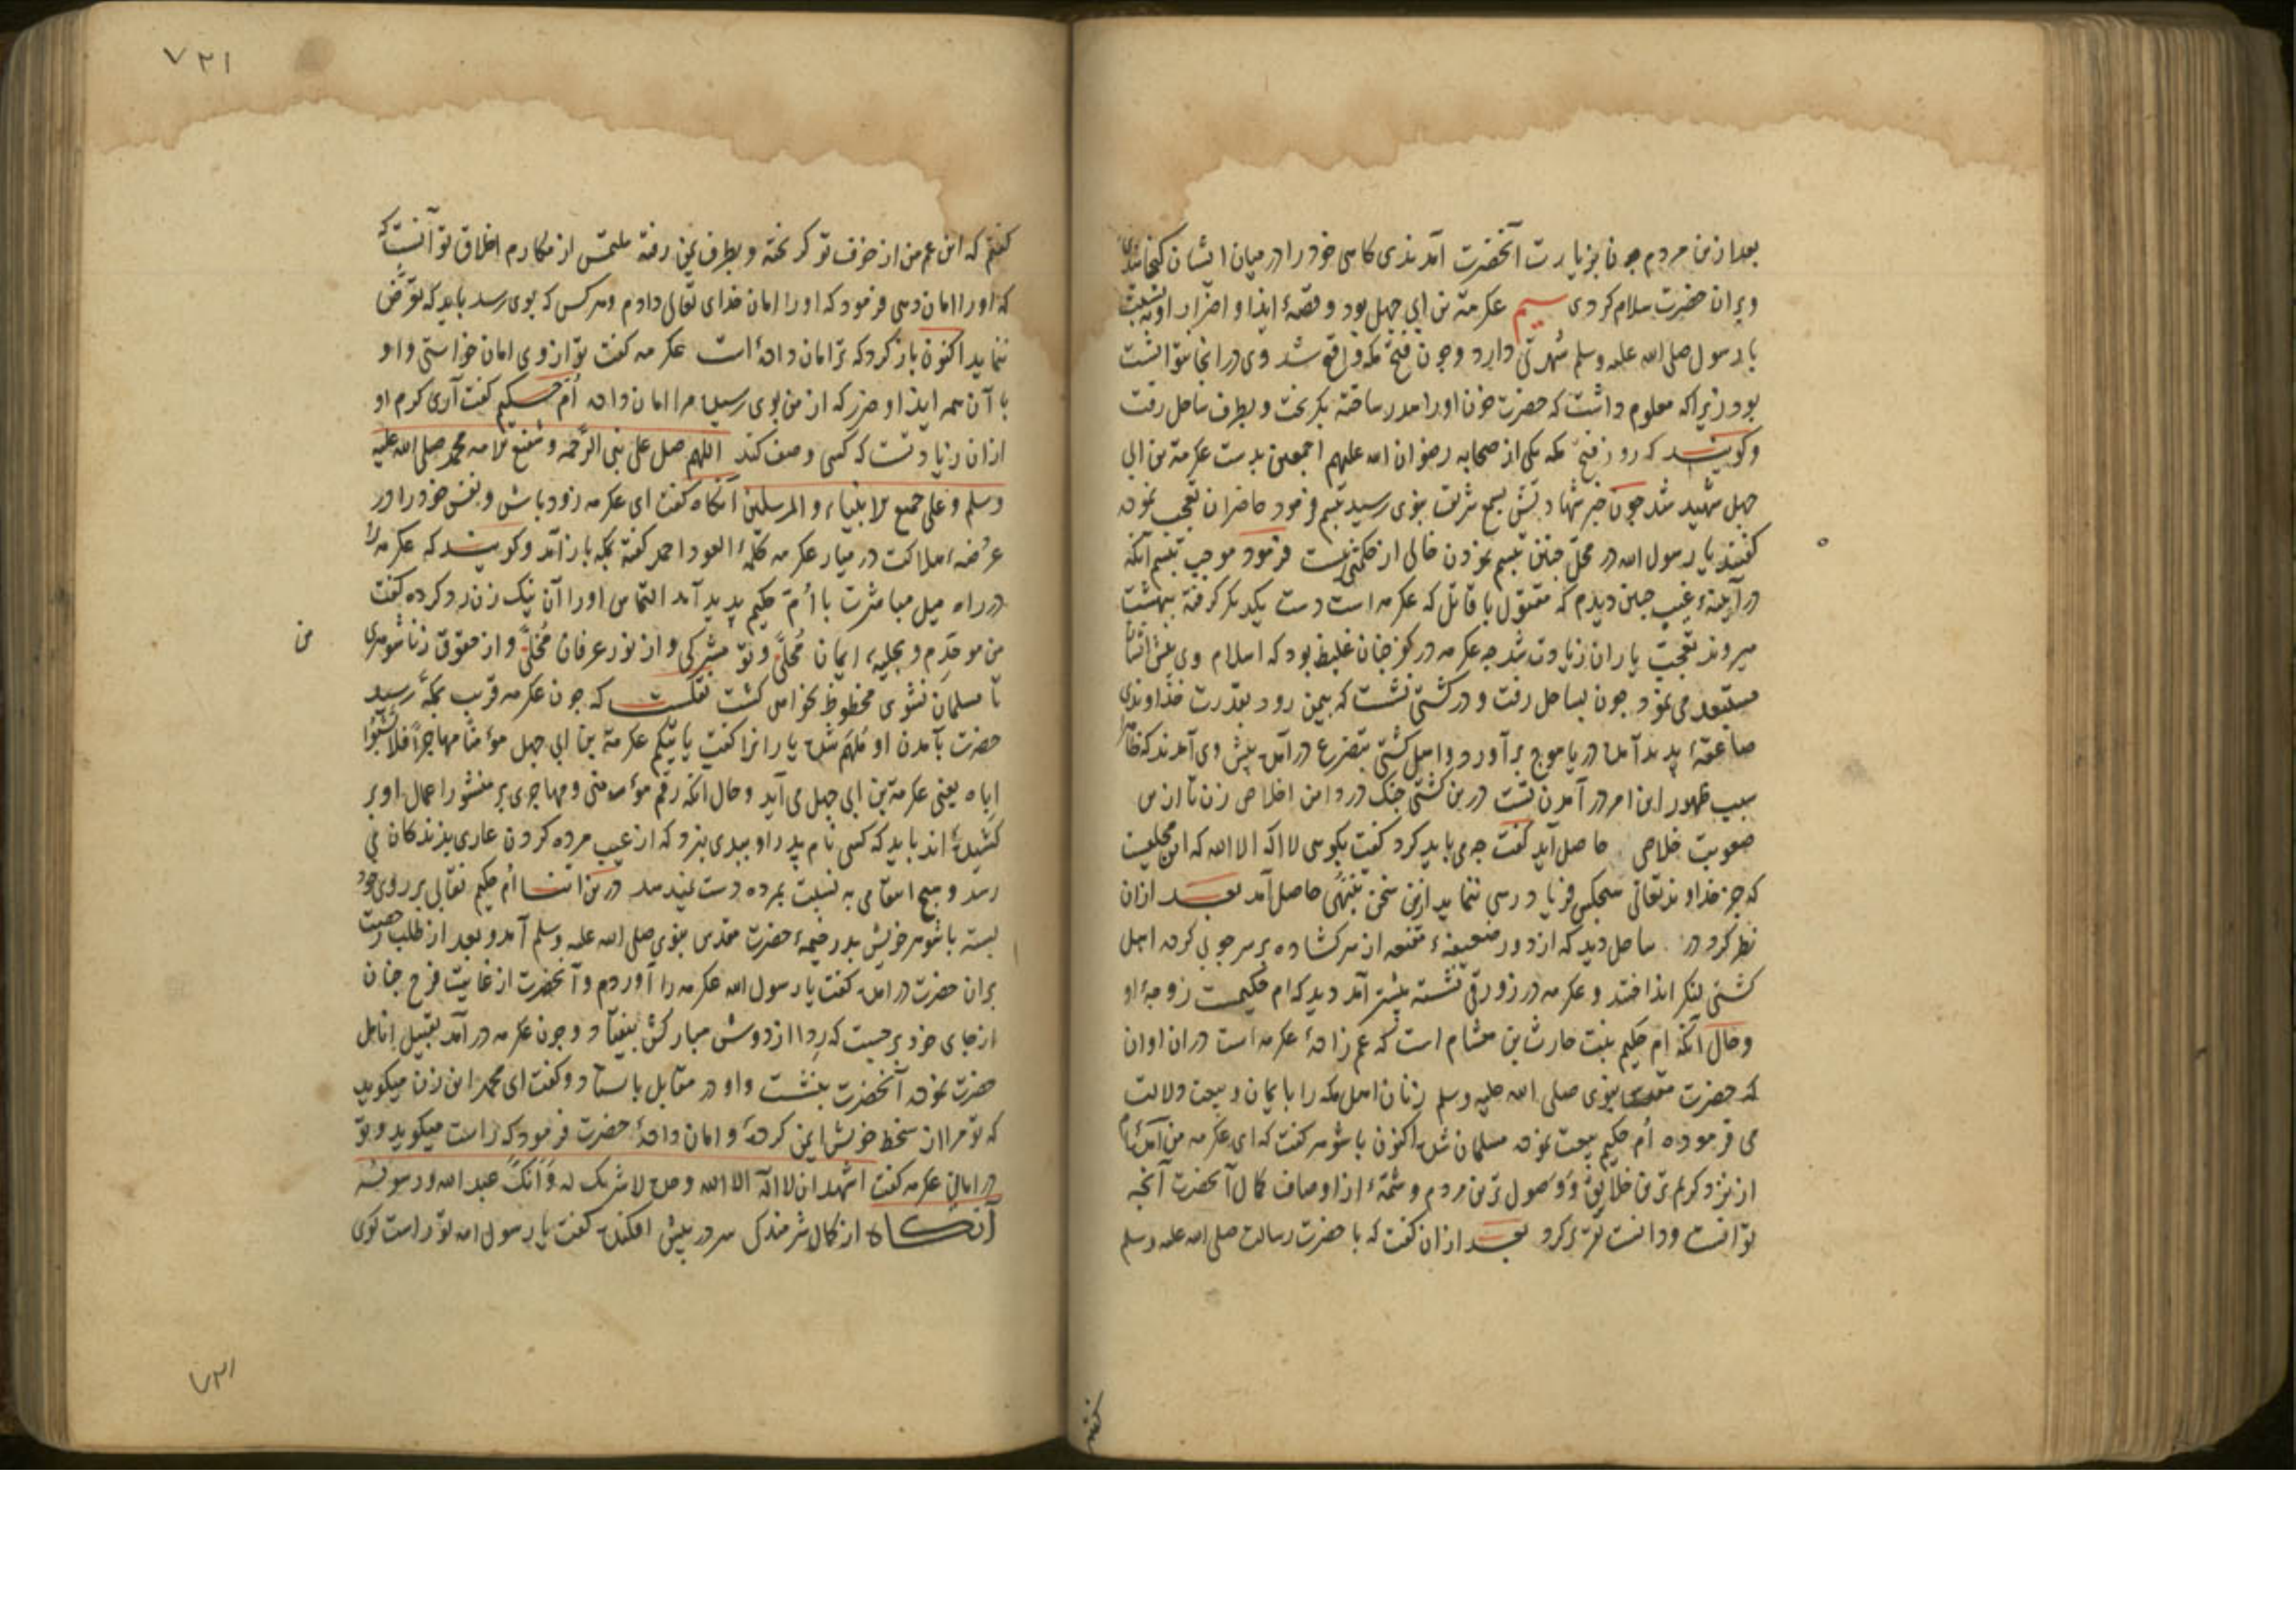 بعد ازین مردم چون بزیارت آنحضرت آمدندی گاهی خود را در میان ایشان گنجانیدی
و بران حضرت سلام کردی سیم عکرمة بن ابی جهل بود و قصهٔ ایذا و اضرار او نسبت
با رسول صلی الله علیه وسلم شهرتی دارد و چون فتح مکه واقع شد وی در انجا نتوانست
بود زیرا که معلوم داشت که حضرت خون او را هدر ساخته بگریخت و بطرف ساحل رفت
و گویند که روز فتح مکه یکی از صحابه رضوان الله علیهم اجمعین بدست عکرمة بن ابی
جهل شهید شد چون خبر شهادتش بسمع شریف نبوی رسید تبسم فرمود حاضران تعجب نموده
گفتند یا رسول الله در محل چنین تبسم نمودن خالی از حکمتی نیست فرمود موجب تبسم آنکه
در آیینهٔ غیب چنین دیدم که مقتول با قاتل که عکرمه است دست یکدیگر گرفته ببهشت
میروند تعجب یاران زیادت شد چه عکرمه در کفر چنان غلیظ بود که اسلام وی پیش ایشان
مستبعد می نمود چون بساحل رفت و در کشتی نشست که بیمن رود بقدرت خداوندی
صاعقهٔ پدید آمده دریا موج برآورد و اهل کشتی بتضرع درآمده پیش وی آمدند که ظاهرا
سبب ظهور این امر در آمدن تست درین کشتی چنگ در دامن اخلاص زن تا ازین
صعوبت خلاص حاصل آید گفت چه می باید کرد گفت بگوی لا اله الا الله که این محلیست
که جز خداوند تعالی هیچکس فریادرسی ننماید ازین سخن تنبهی حاصل آمد بعد ازان
نظر کرد در ساحل دید که از دور ضعیفهٔ مقنعه از سر گشاده بر سر چوبی کرده اهل
کشتی لنگر انداختند و عکرمه در زورقی نشسته پیشتر آمد دید که ام حکیمست زوجهٔ او
و حال آنکه ام حکیم بنت حارث بن هشام است که عم زادهٔ عکرمه است دران اوان
که حضرت مقدس نبوی صلی الله علیه وسلم زنان اهل مکه را بایمان و بیعت دلالت
می فرموده ام حکیم بیعت نموده مسلمان شده اکنون با شوهر گفت که ای عکرمه من آمده ام
از نزد کریم ترین خلایق و وصول ترین مردم و شمهٔ از اوصاف کمال آنحضرت آنچه
توانست و دانست تقریر کرد بعد ازان گفت که با حضرت رسالت صلی الله علیه وسلم
گفتم
۷۲۱
گفتم که ابن عم من از خوف تو گریخته و بطرف یمن رفته ملتمس از مکارم اخلاق تو آنست که
که او را امان دهی فرمود که او را امان خدای تعالی دادم و هر کس که بوی رسد باید که تعرض
ننماید اکنون باز گرد که ترا امان داده است عکرمه گفت تو از وی امان خواستی و او
با آن همه ایذا و ضرر که از من بوی رسیده مرا امان داده ام حکیم گفت آری کرم او
ازان زیادتست که کسی وصف کند اللهم صل علی نبی الرحمه و شفیع الامه محمد صلی الله علیه
وسلم و علی جمیع الانبیاء و المرسلین آنگاه گفت ای عکرمه زود باش و نفس خود را در
عرضهٔ هلاکت در میار عکرمه کلمهٔ العود احمد گفته بمکه باز آمد و گویند که عکرمه را
در راه میل مباشرت با ام حکیم پدید آمد التماس او را آن نیک زن رد کرده گفت
من موحدم و بحلیهٔ ایمان محلی و تو مشرکی و از نور عرفان مخلی و از حقوق زناشوهری
من
تا مسلمان نشوی محظوظ نخواهی گشت نقلست که چون عکرمه قریب بمکه رسید
حضرت بآمدن او ملهم شده یارانرا گفت یاتیکم عکرمة بن ابی جهل مؤمنا مهاجرا فلا تسبوا
اباه یعنی عکرمة بن ابی جهل می آید و حال آنکه رقم مؤمنی و مهاجری بر منشور اعمال او بر
کشیده اند باید که کسی نام پدر او ببدی نبرد که از عیب مرده کردن عاری بزندگان می
رسد و هیچ انتقامی به نسبت بمرده دست نمیدهد درین اثنا ام حکیم نقابی بر روی خود
بسته با شوهر خویش بدر خیمهٔ حضرت مقدس نبوی صلی الله علیه وسلم آمد و بعد از طلب رخصت
بران حضرت درآمده گفت یا رسول الله عکرمه را آوردم و آنحضرت از غایت فرح چنان
از جای خود برجست که ردا از دوش مبارکش بیفتاد و چون عکرمه درآمد تقبیل انامل
حضرت نموده آنحضرت بنشست و او در مقابل بایستاد و گفت ای محمد این زن میگوید
که تو مرا از سخط خویش ایمن کردهٔ و امان دادهٔ حضرت فرمود که راست میگوید و تو
در امانی عکرمه گفت اشهد ان لا اله الا الله وحده لا شریک له و انک عبد الله و رسوله
آنگاه از کمال شرمندگی سر در پیش افکنده گفت یا رسول الله تو راست گوی
۷۲۱